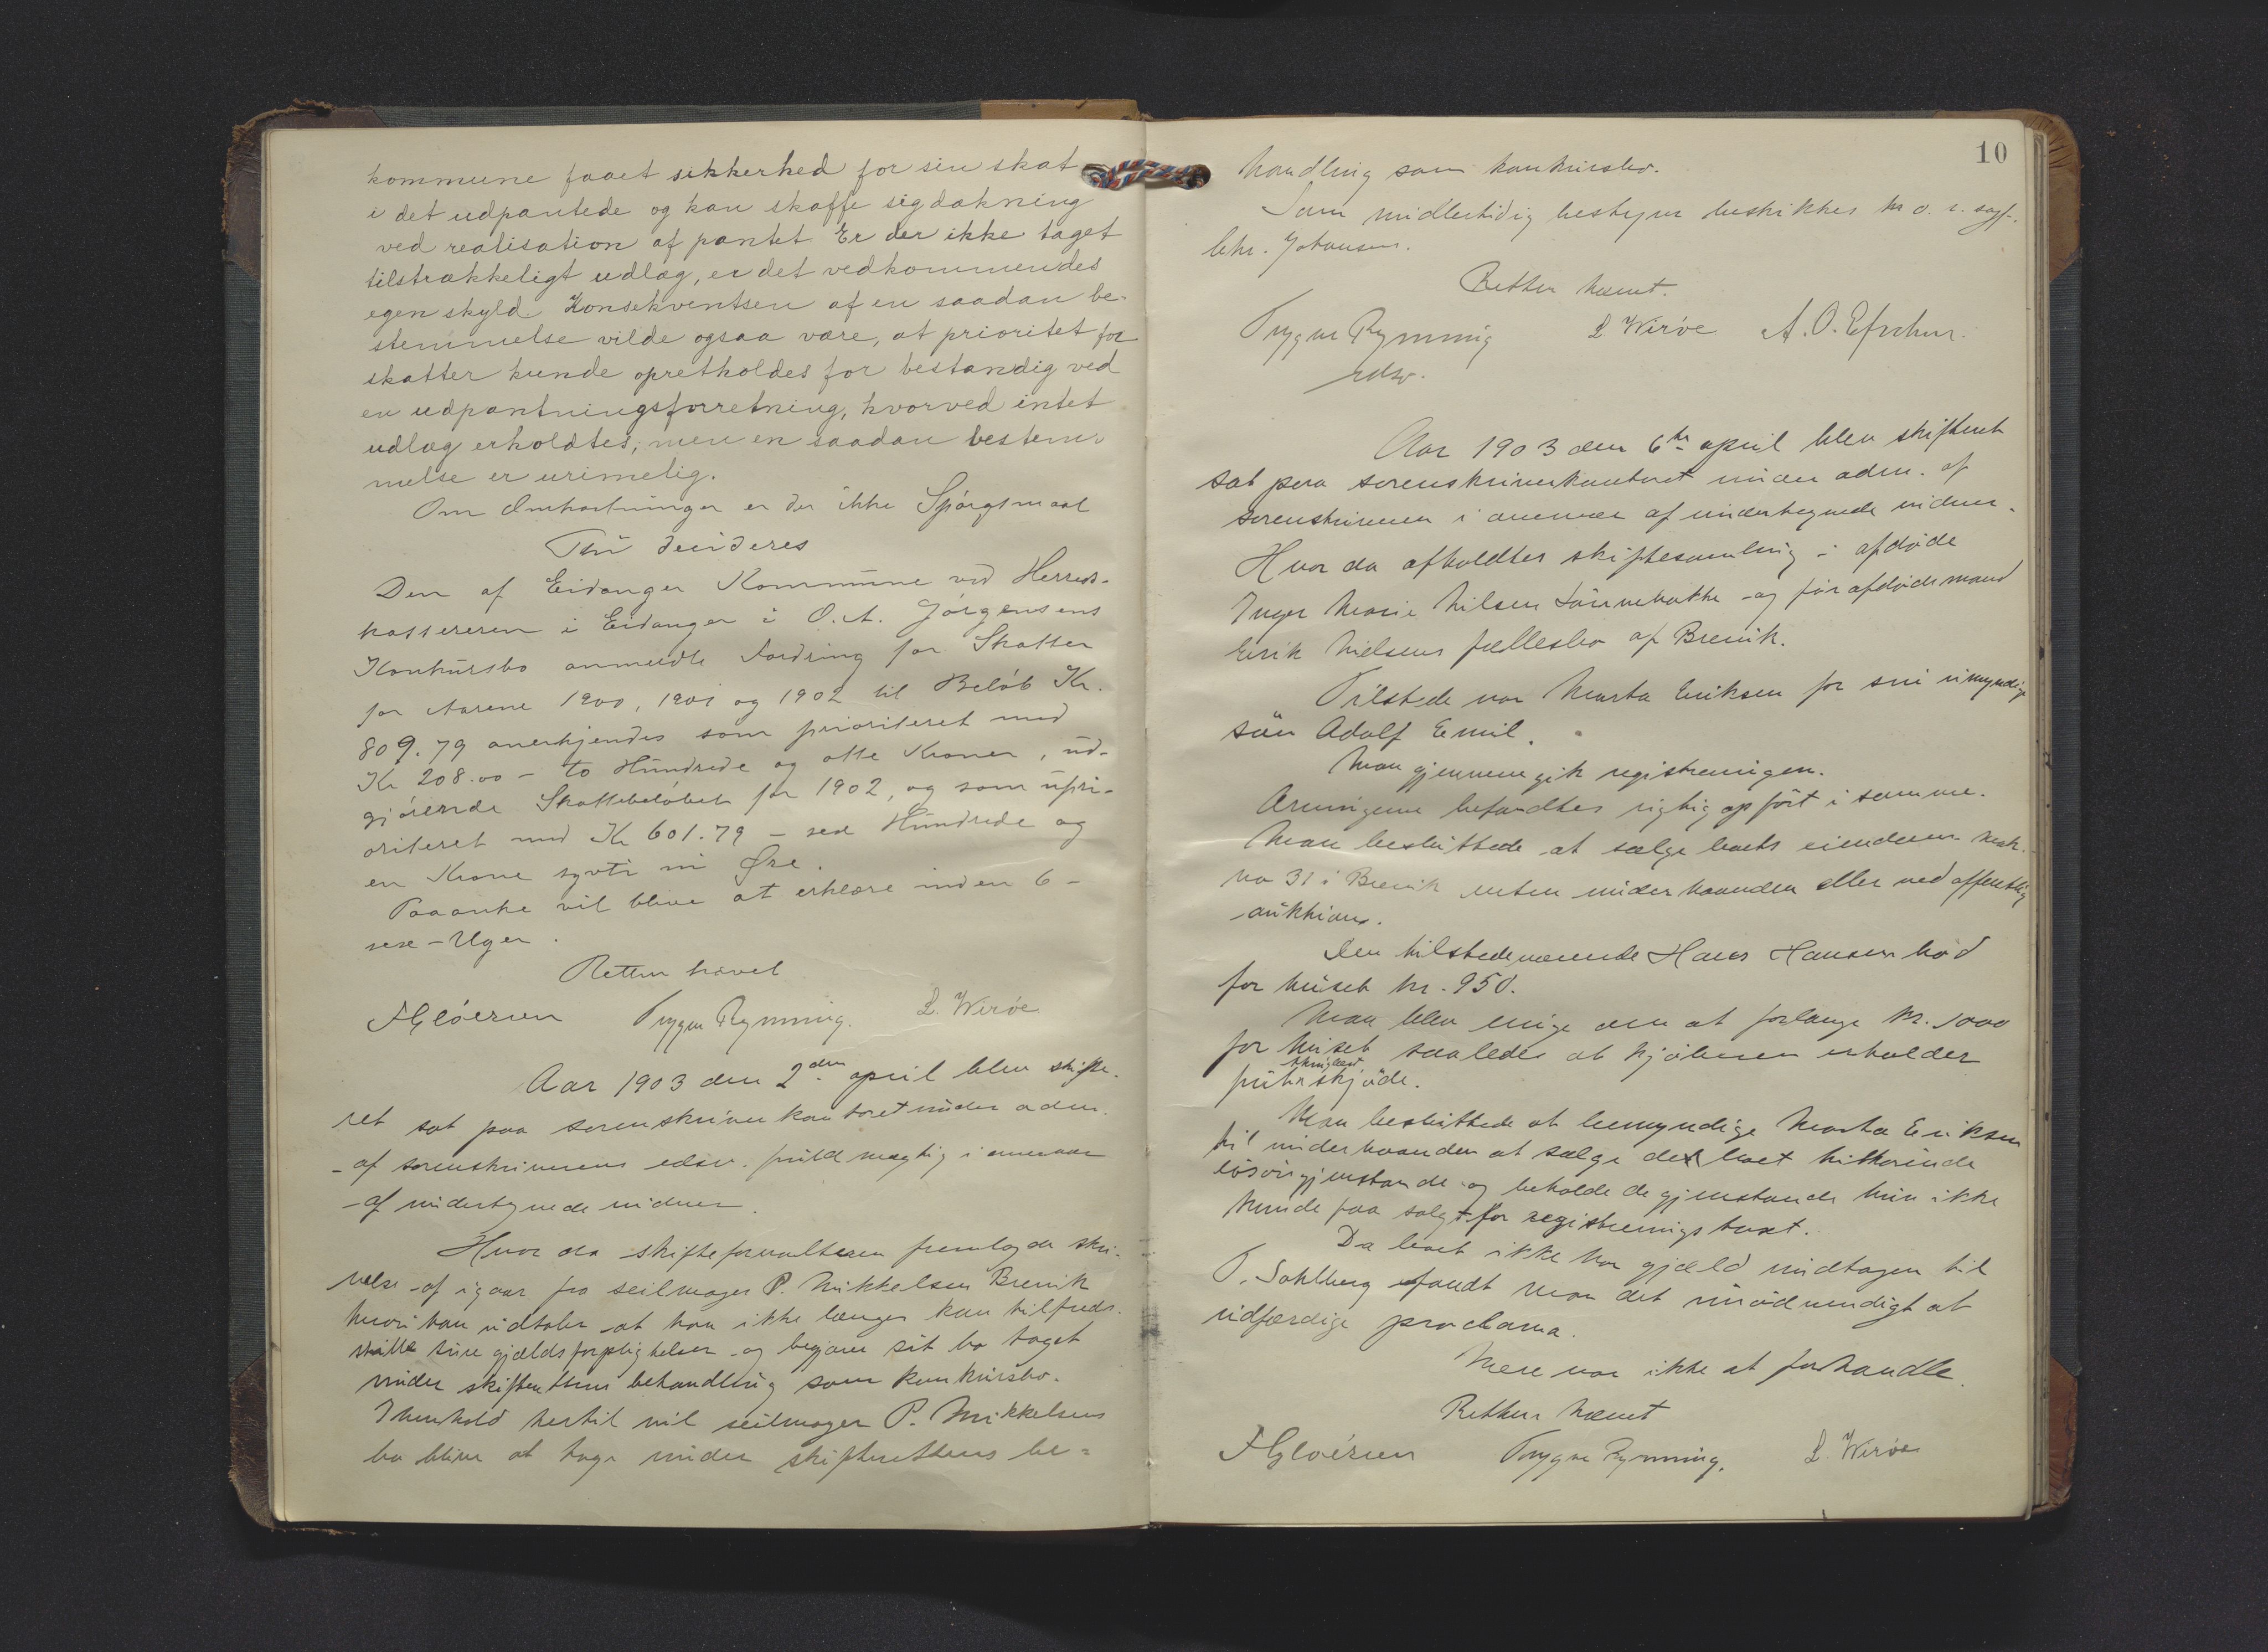 kommune faaet sikkerhed for sin skat
i det udpantede og kan skaffe sig dækning
ved realisation af pantet Er der ikke taget
tilstrækkeligt udlæg, er det vedkommendes
egen skyld. Konsekventsen af en saadan be-
stemmelse vilde ogsaa være, at prioritet for
skatter kunde opretholdes for bestandig ved
en udpantningsforretning, hvorved intet
udlæg erholdtes; men en saadan bestem-
melse er urimelig.
Om Omkostninger er der ikke Spörgsmaal
Thi decideres
Den af Eidanger Kommune ved Herreds-
kassereren i Eidanger i O. A. Jörgensens
Konkursbo anmeldte Fordring for Skatter
for Aarene 1900, 1901 og 1902 til Belöb Kr.
809.79 anerkjendes som prioriteret med
Kr 208.00 - to Hundrede og otte Kroner, ud-
gjörende Skattebelöbet for 1902, og som upri-
oriteret med Kr 601.79 - sex Hundrede og
en Krone sytti ni Øre.
Paaanke vil blive at erklære inden 6 -
sex - Uger.
Retten hævet
Trygve Rynning. L. Wiröe
Aar 1903 den 2den april blev skifte-
ret sat paa sorenskriverkontoret under adm.
af sorenskriverens edsv. fuldmægtig i nærvær
af undertegnede vidner.
Hvor da skifteforvalteren fremlagde skri-
velse af igaar fra seilmager P. Mikkelsen Brevik
hvori han udtaler at han ikke længer kan tilfreds-
stille sine gjældsforpligtelser og begjærer sit bo taget
under skifterettens behandling som konkursbo.
I henhold hertil vil seilmager P. Mikkelsens
bo blive at tage under skifterettens be=
10
handling som konkursbo.
Som midlertidig bestyrer beskikkes hr o. r. sagf.
Chr. Johansen.
Retten hævet.
Trygve Rynning L Wiröe A. O.
edsv.
Aar 1903 den 6te april blev skifteret
sat paa sorenskriverkontoret under adm. af
sorenskriveren i nærvær af undertegnede vidner.
Hvor da afholdtes skiftesamling i afdöde
Inger Marie Nilsen og för afdöde mand
Eirik Nielsens fællesbo af Brevik.
Tilstede var Marta Eriksen for sin umyndige
sön Adolf Emil.
Man gjennemgik registreringen.
Arvingerne befandtes rigtig opfört i samme.
Man besluttede at sælge boets eiendom matr.
no 31 i Brevik enten underhaanden eller ved offentlig
auktion.
Den tilstedeværende Hans Hansen böd
for huset kr. 950.
Man blev enige om at forlange kr. 1000
for huset saaledes at kjöberen erholder
skjöde.
Man besluttede at bemyndige Marta Eriksen
til underhaanden at sælge de boet tilhörende
lösöregjenstande og beholde de gjenstande hun ikke
kunde faa solgt for registreringstaxt.
Da boet ikke har gjæld undtagen til
P. Sahlberg fandt man det unödvendigt at
udfærdige proclama.
Mere var ikke at forhandle.
Retten hævet
Trygve Rynning. L. Wiröe